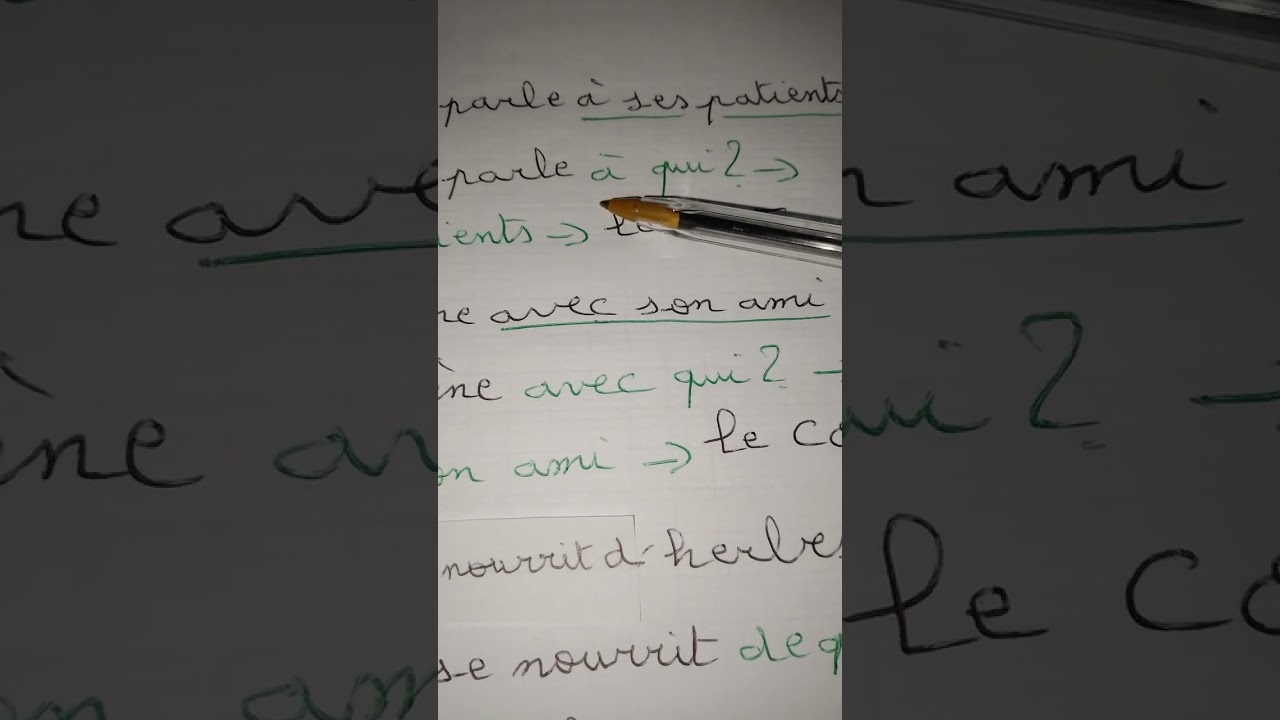 parle à ses patients
parle à qui? →
ients →
ne avec son ami
ène avec qui? →
on ami → le co
nourrit d'herbes
se nourrit de q